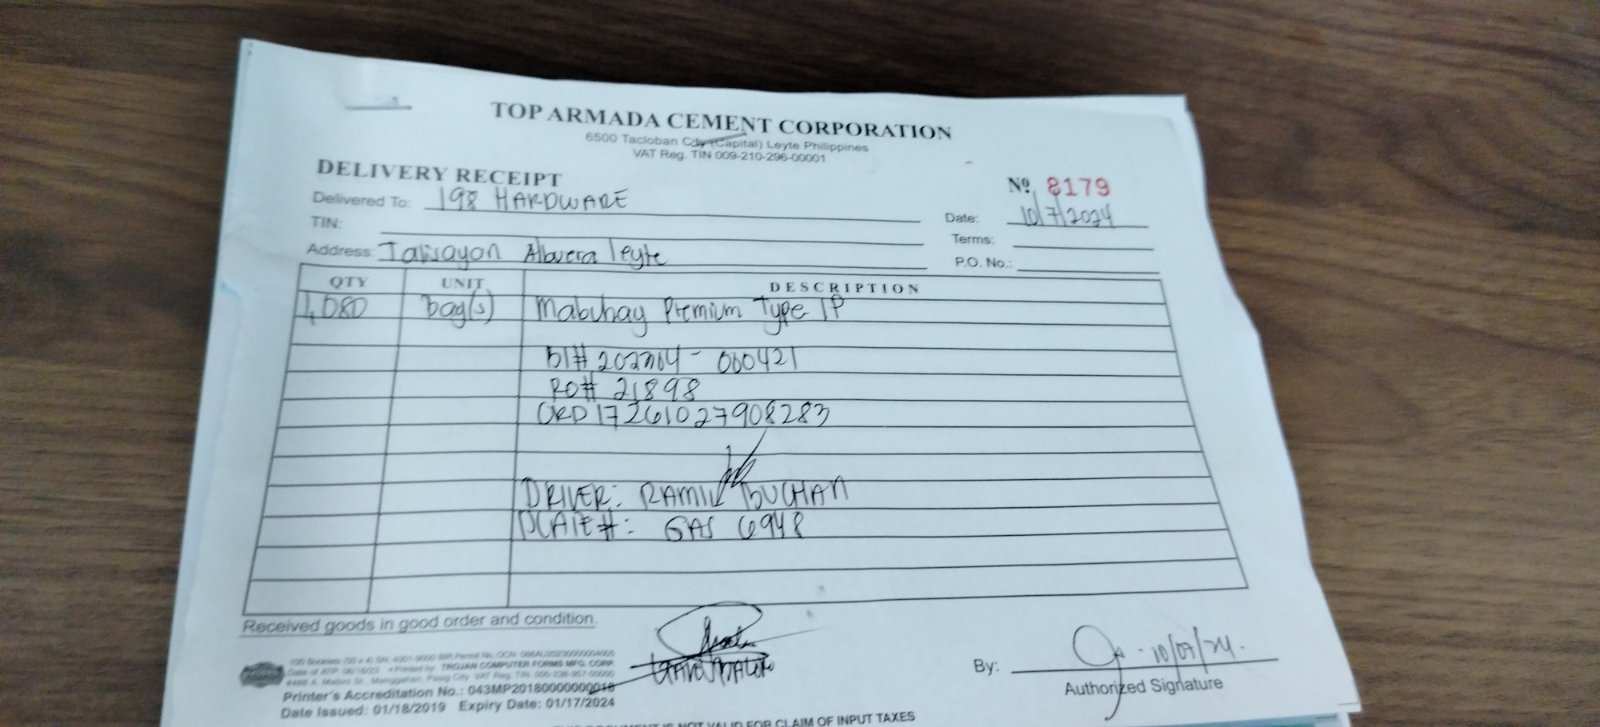 TOP ARMADA CEMENT CORPORATION
6500 Tacloban City (Capital) Leyte Philippines
VAT Reg. TIN 009-210-296-00001
DELIVERY RECEIPT
Nº 8179
Delivered To: 198 HARDWARE
Date: 10/7/2024
TIN:
Terms:
Address: Talisayon Albuera leyte
P.O. No.:
QTY UNIT DESCRIPTION
1,080 bag(s) Mabuhay Premium Type 1P
000421
RO# 21898
ORD 17261027908283
DRIVER: RAMIL BUCHAN
PLATE#: GAS 6948
Received goods in good order and condition.
TROJAN COMPUTER FORMS MFG. CORP.
Printer's Accreditation No.: 043MP20180000000016
Date Issued: 01/18/2019 Expiry Date: 01/17/2024
By: 10/07/24.
Authorized Signature
NOT VALID FOR CLAIM OF INPUT TAXES